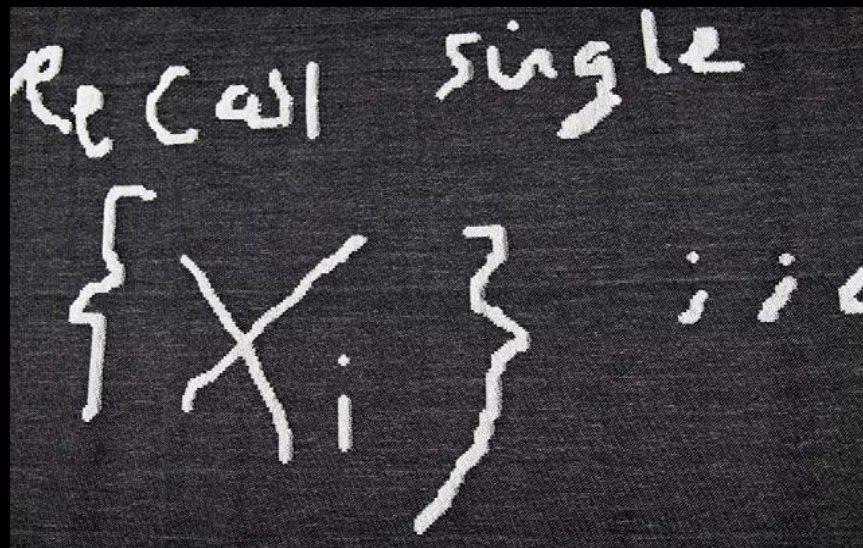 Recall single
{X_i} iid